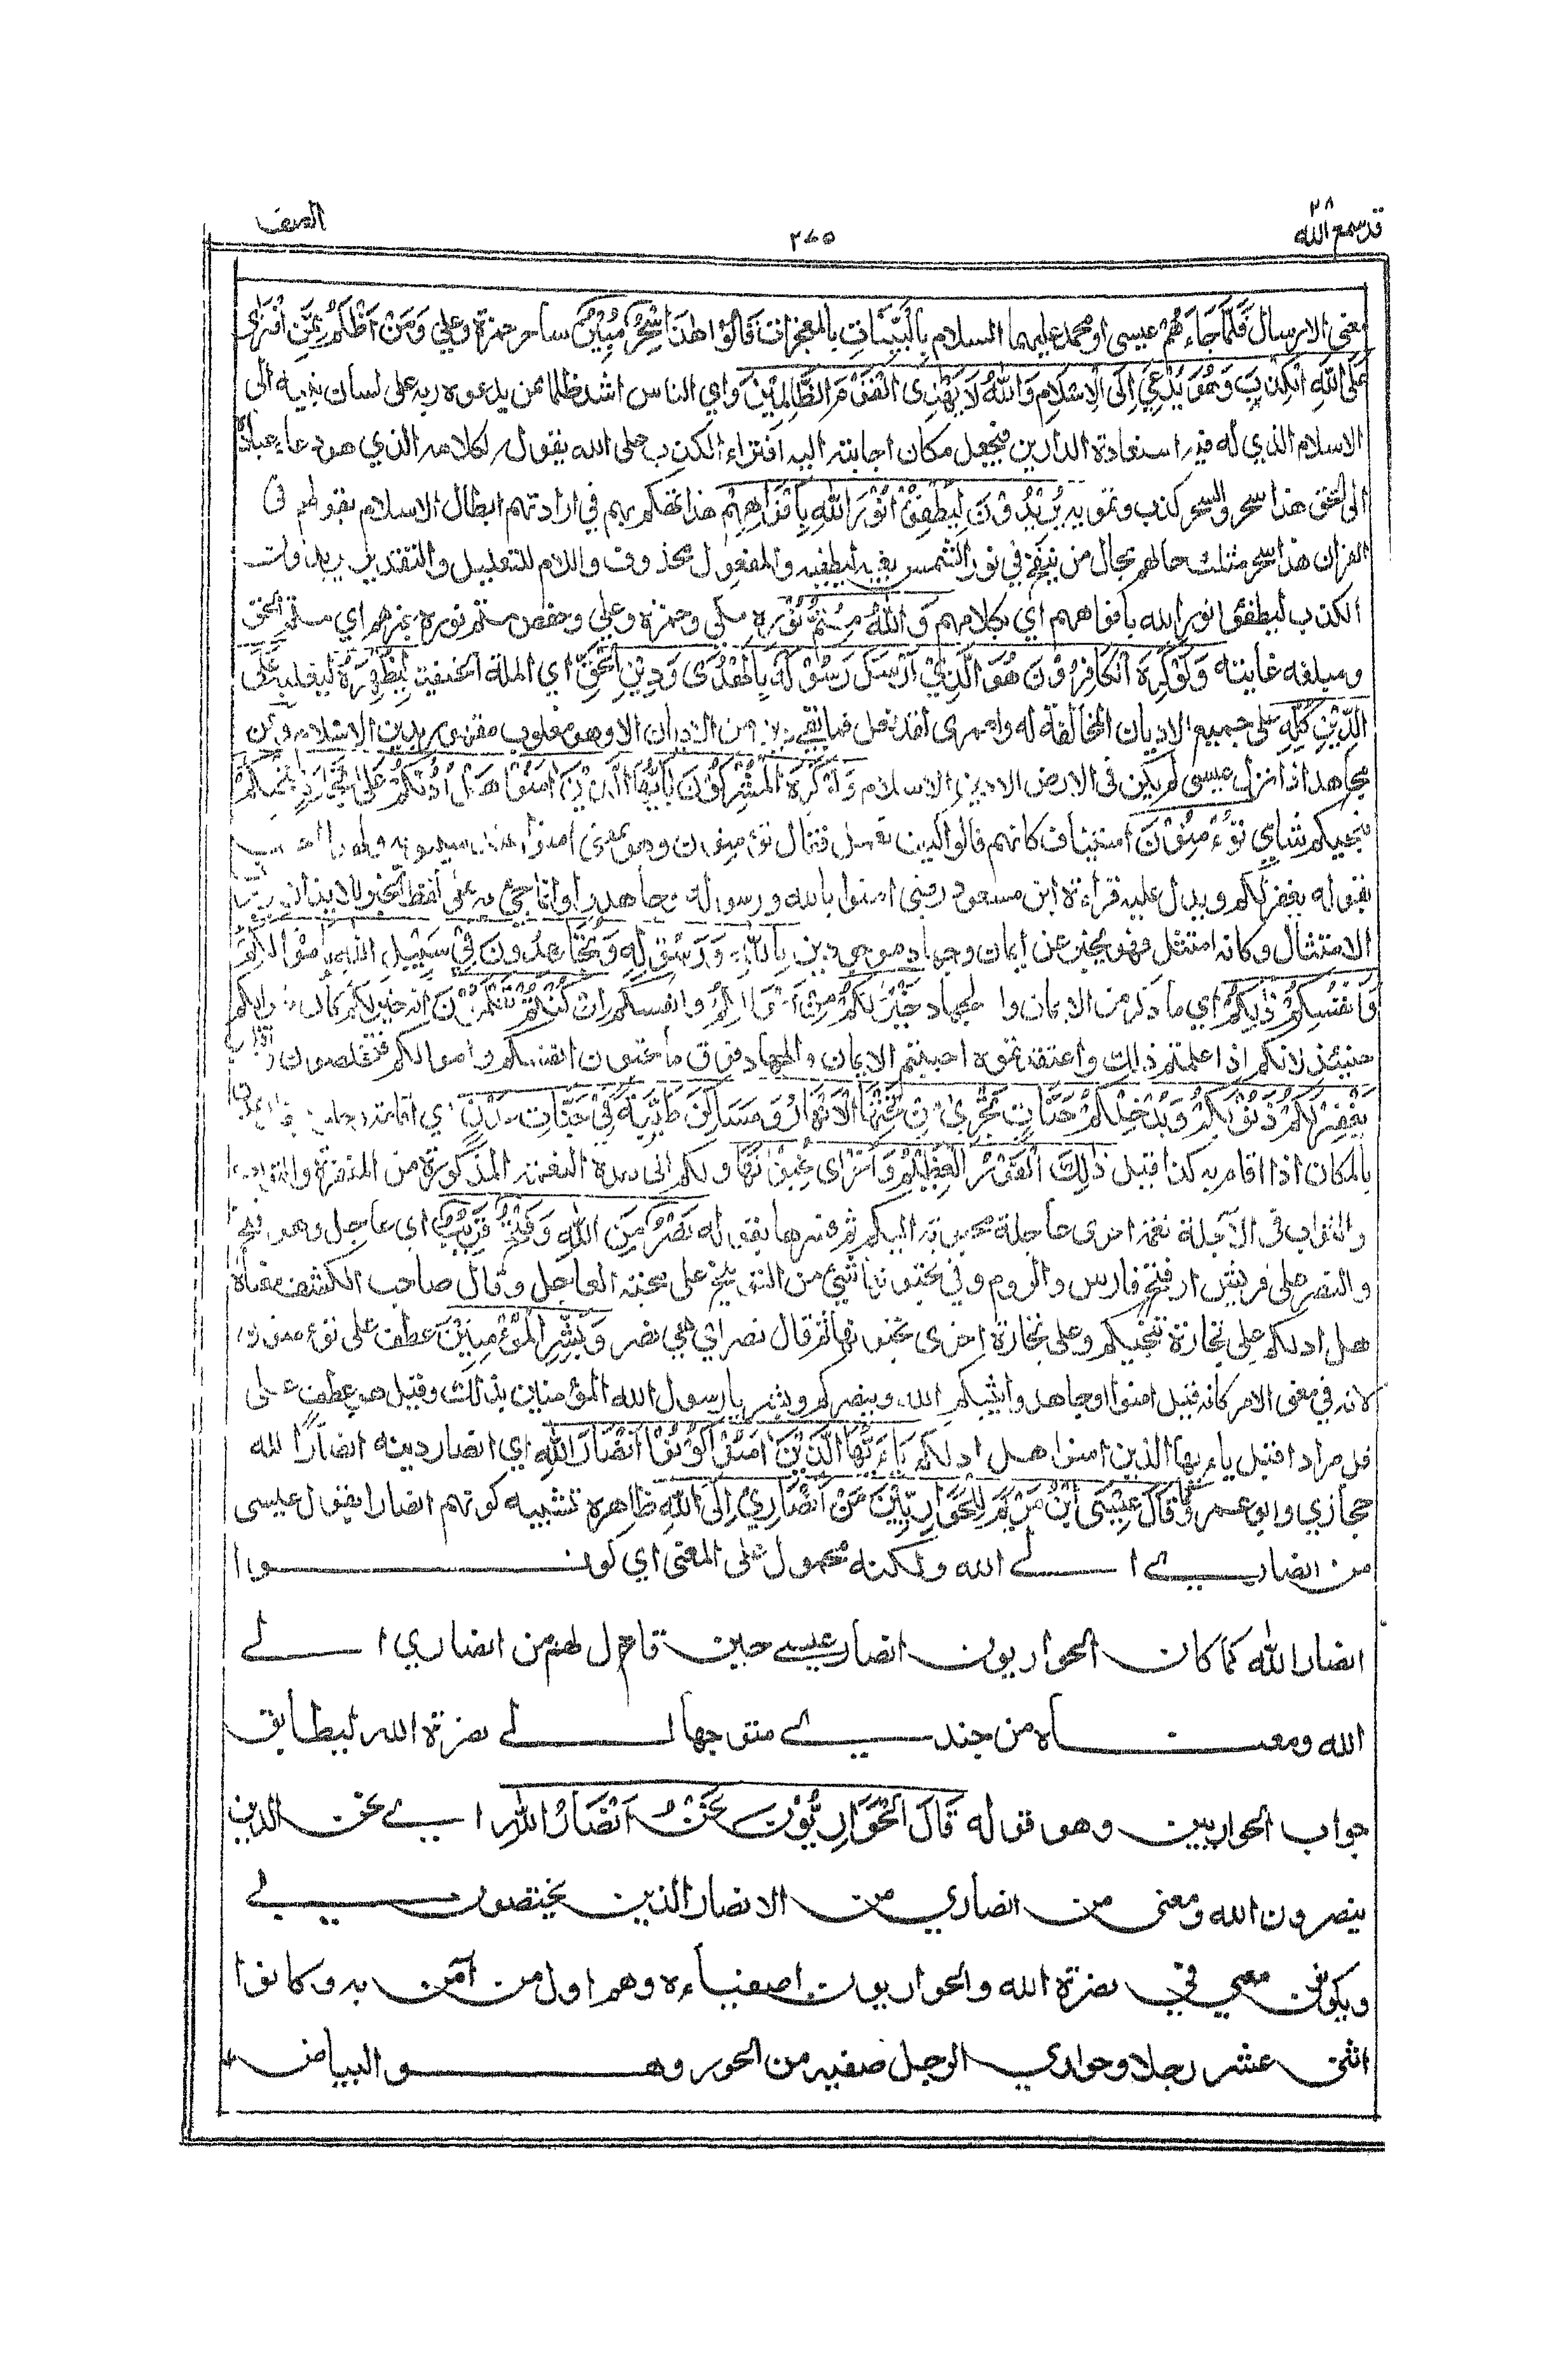 قد سمع الله ٢٨
٢٧٥
الصف
معنى الارسال فَلَمَّا جَاءَهُمْ عيسى او محمد عليهما السلام بِالْبَيِّنَاتِ بالمعجزات قَالُوْا هٰذَا سِحْرٌ مُبِيْنٌ ساحر حمزة وعلي وَمَنْ اَظْلَمُ مِمَّنِ افْتَرٰى
عَلَى اللّٰهِ الْكَذِبَ وَهُوَ يُدْعٰى اِلَى الْاِسْلَامِ وَاللّٰهُ لَا يَهْدِى الْقَوْمَ الظَّالِمِيْنَ واي الناس اشد ظلما ممن يدعوه ربه على لسان نبيه الى
الاسلام الذي له فيه سعادة الدارين فيجعل مكان اجابته اليه افتراء الكذب على الله بقوله لكلامه الذي هو دعاء عباده
الى الحق هذا سحر والسحر كذب وتمويه يُرِيْدُوْنَ لِيُطْفِئُوْا نُوْرَ اللّٰهِ بِاَفْوَاهِهِمْ هذا تهكم بهم في ارادتهم ابطال الاسلام بقولهم فى
القران هذا سحر مثلت حالهم بحال من ينفخ في نور الشمس بفيه ليطفيه والمفعول محذوف واللام للتعليل والتقدير يريدون
الكذب ليطفؤا نور الله بافواههم اي بكلامهم وَاللّٰهُ مُتِمُّ نُوْرِهٖ مكي وحمزة وعلي وحفص متم نوره غيرهم اي متم الحق
ومبلغه غايته وَلَوْ كَرِهَ الْكَافِرُوْنَ هُوَ الَّذِيْ اَرْسَلَ رَسُوْلَهٗ بِالْهُدٰى وَدِيْنِ الْحَقِّ اي الملة الحنيفية لِيُظْهِرَهٗ ليغلبه عَلَى
الدِّيْنِ كُلِّهٖ على جميع الاديان المخالفة له ولعمرى لقد فعل فما بقي دين من الاديان الا وهو مغلوب مقهور بدين الاسلام وعن
مجاهد اذا نزل عيسى لم يكن فى الارض الا دين الاسلام وَلَوْ كَرِهَ الْمُشْرِكُوْنَ يَا اَيُّهَا الَّذِيْنَ اٰمَنُوْا هَلْ اَدُلُّكُمْ عَلٰى تِجَارَةٍ تُنْجِيْكُمْ
تنجيكم شامي تُؤْمِنُوْنَ استيناف كانهم قالوا كيف نعمل فقال تؤمنون وهو بمعنى امنوا عند سيبويه ولهذا اجيب
بقوله يغفر لكم ويدل عليه قراءة ابن مسعود رضى امنوا بالله ورسوله وجاهدوا وانما جئ به على لفظ الخبر للايذان بوجوب
الامتثال وكانه امتثل فهو يخبر عن ايمان وجهاد موجودين بِاللّٰهِ وَرَسُوْلِهٖ وَتُجَاهِدُوْنَ فِيْ سَبِيْلِ اللّٰهِ بِاَمْوَالِكُمْ
وَاَنْفُسِكُمْ ذٰلِكُمْ اي ما ذكر من الايمان والجهاد خَيْرٌ لَكُمْ من اموالكم وانفسكم اِنْ كُنْتُمْ تَعْلَمُوْنَ انه خير لكم كان خيرا لكم
حينئذ لانكم اذا علمتم ذلك واعتقدتموه احببتم الايمان والجهاد فوق ما تحبون انفسكم واموالكم فتخلصون
يَغْفِرْ لَكُمْ ذُنُوْبَكُمْ وَيُدْخِلْكُمْ جَنَّاتٍ تَجْرِيْ مِنْ تَحْتِهَا الْاَنْهَارُ وَمَسَاكِنَ طَيِّبَةً فِيْ جَنَّاتِ عَدْنٍ اي اقامة
بالمكان اذا اقام به كذا قيل ذٰلِكَ الْفَوْزُ الْعَظِيْمُ وَاُخْرٰى تُحِبُّوْنَهَا ولكم الى هذه النعمة المذكورة من المغفرة
والثواب فى الآجلة نعمة اخرى عاجلة محبوبة اليكم ثم فسرها بقوله نَصْرٌ مِنَ اللّٰهِ وَفَتْحٌ قَرِيْبٌ اى عاجل وهو فتح
والنصر على قريش او فتح فارس والروم وفي تحبونها شيئ من التوبيخ على محبة العاجل وقال صاحب الكشف معناه
هل ادلكم على تجارة تنجيكم وعلى تجارة اخرى تحبونها ثم قال نصر اي هي نصر وَبَشِّرِ الْمُؤْمِنِيْنَ عطف على تؤمنون
لانه في معنى الامر كانه قيل امنوا وجاهدوا يثبكم الله وينصركم وبشر يا رسول الله المؤمنين بذلك وقيل هو عطف على
قل مرادا قبل ياءيها الذين امنوا هل ادلكم يَاءَيُّهَا الَّذِيْنَ اٰمَنُوْا كُوْنُوْا اَنْصَارَ اللّٰهِ اي انصار دينه انصارًا لله
حجازي وابو عمرو كَمَا قَالَ عِيْسَى ابْنُ مَرْيَمَ لِلْحَوَارِيِّيْنَ مَنْ اَنْصَارِيْ اِلَى اللّٰهِ ظاهره تشبيه كونهم انصارا بقول عيسى
من انصاري الى الله ولكنه محمول على المعنى اي كونوا
انصار الله كما كان الحواريون انصار عيسى حين قال لهم من انصاري الى
الله ومعناه من جندي متوجها الى نصرة الله ليطابق
جواب الحواريين وهو قوله قَالَ الْحَوَارِيُّوْنَ نَحْنُ اَنْصَارُ اللّٰهِ اي نحن الذين
ينصرون الله ومعنى من انصاري من الانصار الذين يختصون بي
ويكونون معي في نصرة الله والحواريون اصفياءه وهم اول من آمن به وكانوا
اثنى عشر رجلا وحواري الرجل صفيه من الحور وهو البياض